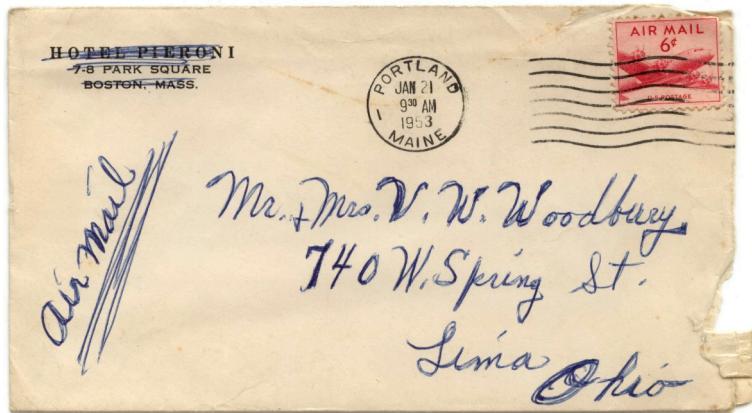 HOTEL PIERONI
7-8 PARK SQUARE
BOSTON, MASS.
PORTLAND
JAN 21
9 30 AM
1953
1
MAINE
AIR MAIL
6¢
U.S. POSTAGE
air mail
Mr. & Mrs. V. W. Woodbury
740 W. Spring St.
Lima
Ohio